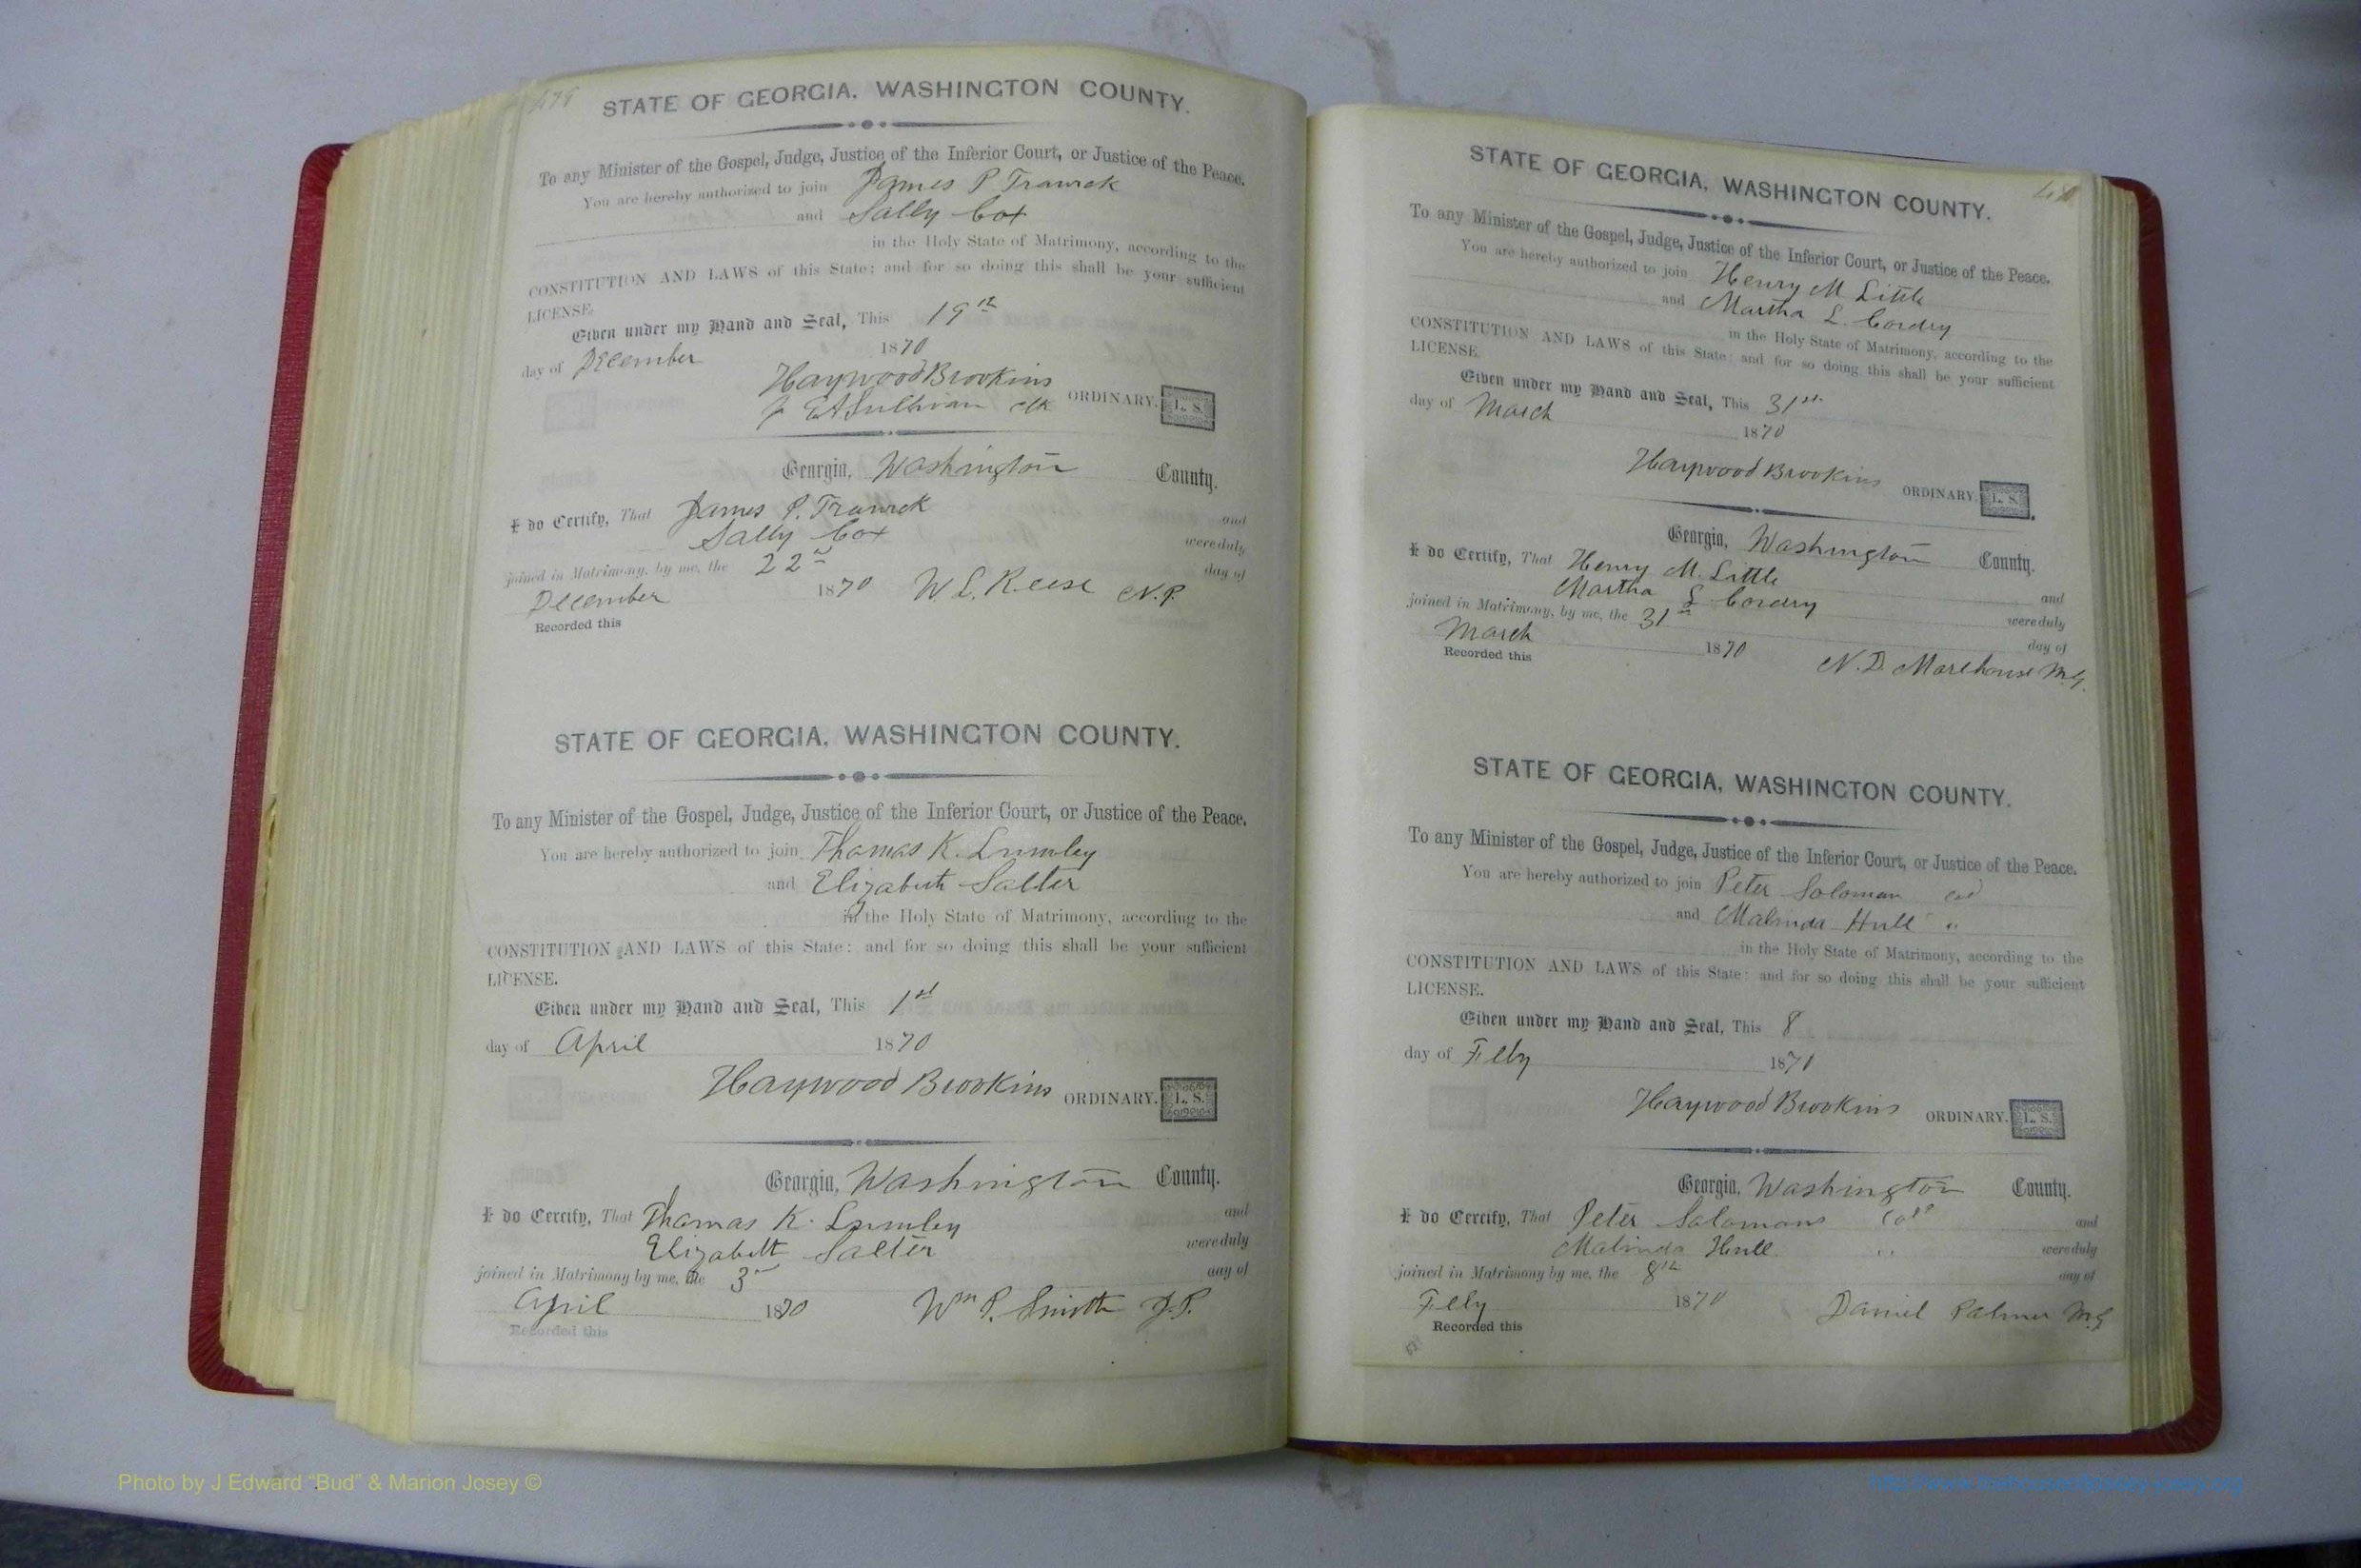 479
STATE OF GEORGIA, WASHINGTON COUNTY.
To any Minister of the Gospel, Judge, Justice of the Inferior Court, or Justice of the Peace.
You are hereby authorized to join James P Trawick
and Sally Cox
in the Holy State of Matrimony, according to the
CONSTITUTION AND LAWS of this State; and for so doing this shall be your sufficient
LICENSE.
Given under my Hand and Seal, This 19th
day of December 1870
Haywood Brookins
EASullivan clk ORDINARY. L. S.
Georgia, Washington County.
I do Certify, That James P. Trawick and
Sally Cox were duly
joined in Matrimony, by me, the 22nd day of
December 1870 W. L. Reese N. P.
Recorded this
STATE OF GEORGIA, WASHINGTON COUNTY.
To any Minister of the Gospel, Judge, Justice of the Inferior Court, or Justice of the Peace.
You are hereby authorized to join Thomas K. Lumley
and Elizabeth Salter
in the Holy State of Matrimony, according to the
CONSTITUTION AND LAWS of this State: and for so doing this shall be your sufficient
LICENSE.
Given under my Hand and Seal, This 1st
day of April 1870
Haywood Brookins ORDINARY. L. S.
Georgia, Washington County.
I do Certify, That Thomas K. Lumley and
Elizabeth Salter were duly
joined in Matrimony by me, the 3rd day of
April 1870 Wm P. Smith J.P.
Recorded this
STATE OF GEORGIA, WASHINGTON COUNTY.
To any Minister of the Gospel, Judge, Justice of the Inferior Court, or Justice of the Peace.
You are hereby authorized to join Henry M Little
and Martha L. Cordry
in the Holy State of Matrimony, according to the
CONSTITUTION AND LAWS of this State: and for so doing this shall be your sufficient
LICENSE
Given under my Hand and Seal, This 31st
day of March 1870
Haywood Brookins ORDINARY. L. S.
Georgia, Washington County.
I do Certify, That Henry M. Little and
Martha L Cordry were duly
joined in Matrimony, by me, the 31st day of
March 1870 N. D. Morehouse M.G.
Recorded this
STATE OF GEORGIA, WASHINGTON COUNTY.
To any Minister of the Gospel, Judge, Justice of the Inferior Court, or Justice of the Peace.
You are hereby authorized to join Peter Soloman Cold
and Malinda Hull "
in the Holy State of Matrimony, according to the
CONSTITUTION AND LAWS of this State: and for so doing this shall be your sufficient
LICENSE.
Given under my Hand and Seal, This 8
day of Feby 1870
Haywood Brookins ORDINARY. L. S.
Georgia, Washington County.
I do Certify, That Peter Solomans Cold and
Malinda Hull " were duly
joined in Matrimony by me, the 8th day of
Feby 1870 Daniel Palmer M.G
Recorded this
Photo by J Edward "Bud" & Marion Josey ©